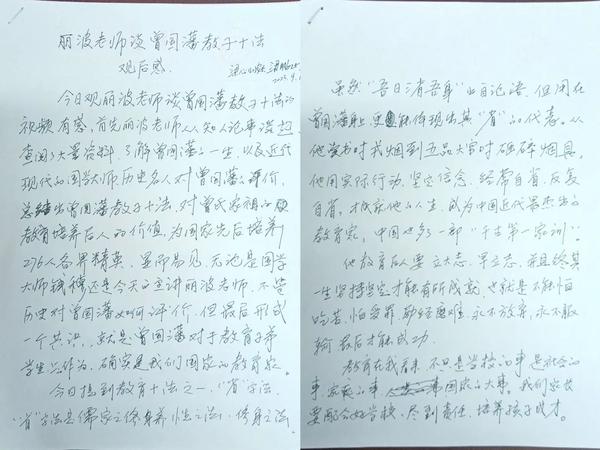 丽波老师谈曾国藩教子十法
观后感
今日观丽波老师谈曾国藩教子十法的
视频有感，首先丽波老师从认知人记事谈起
查阅了大量资料，了解曾国藩的一生，以及近代
现代的国学大师，历史名人对曾国藩的评价，
总结出曾国藩教子十法，对曾氏家祖的
教育培养后人的价值，为国家先后培养
276人各界精英，显而易见，无论是国学
大师钱穆还是今天的主讲丽波老师，不管
历史对曾国藩如何评价，但最后形成
一个共识，就是曾国藩对于教育子弟
学生已作为，确实是我们国家的教育家。
今日提到教育十法之一，"省"字法，
"省"字法是儒家之修身养性之法，修身之法。
虽然"吾日三省吾身"的自论语，但用在
曾国藩身上更能体现出其"省"的代表。从
他读书时戒烟到五品大官时砸碎烟具，
他用实际行动，坚定信念，经常自省，反复
自省，才成就他的人生，成为中国近代最杰出的
教育家，中国也多了一部"千古第一家训"。
他教育后人要立大志，早立志，并且终其
一生坚持坚定才能有所成就，也就是不能怕
吃苦，怕受罪，勤经磨难，永不放弃，永不服
输最后才能成功。
教育在我看来，不只是学校的事是社会的
事家庭的事国家的大事。我们家长
要配合好学校，尽到责任，培养孩子成才。